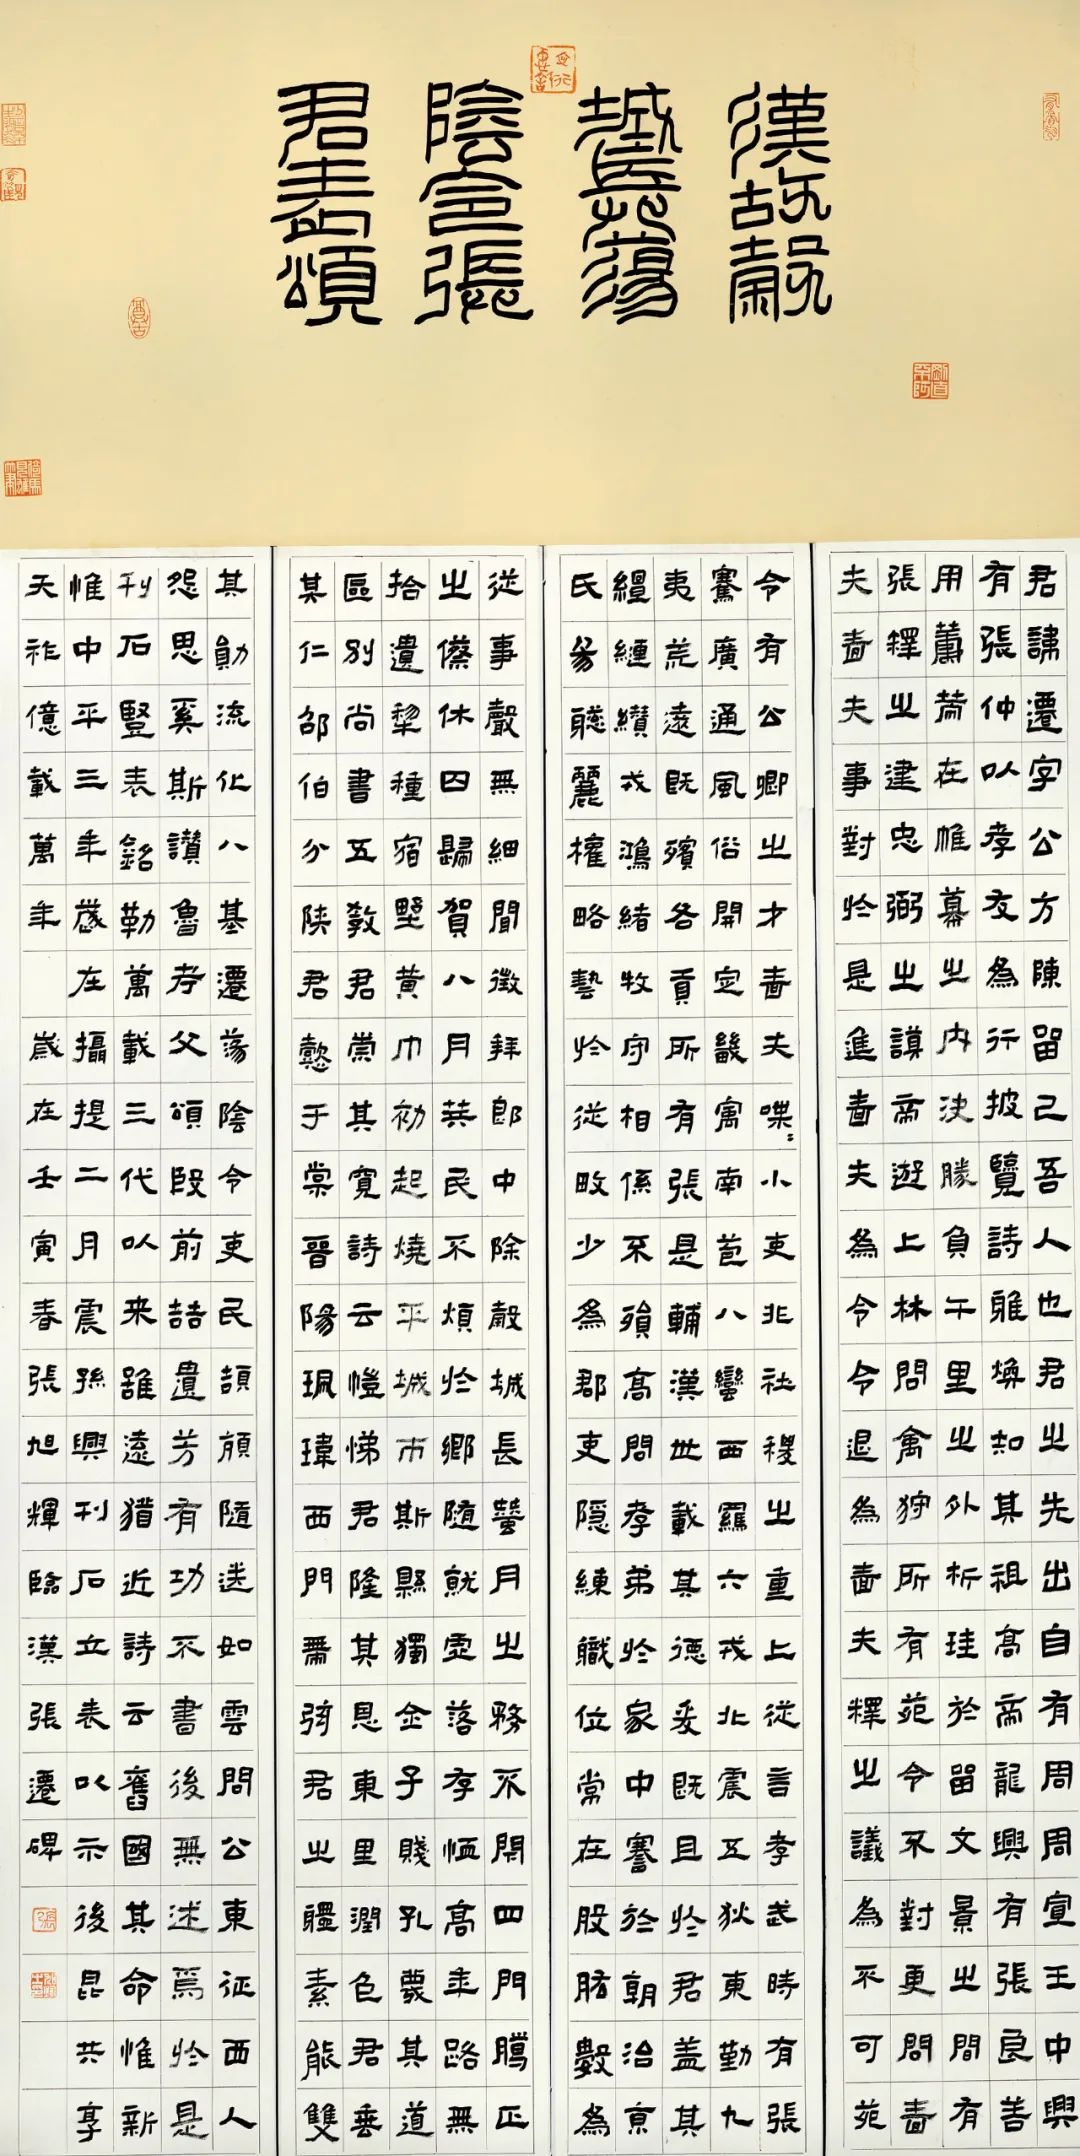 漢故穀
城長蕩
陰令張
君表頌
君諱遷字公方陳留己吾人也君之先出自有周周宣王中興
有張仲以孝友為行披覽詩雅煥知其祖高帝龍興有張良善
用籌策在帷幕之內決勝負千里之外析珪於留文景之間有
張釋之建忠弼之謨帝遊上林問禽狩所有苑令不對更問嗇
夫嗇夫事對於是進嗇夫為令令退為嗇夫釋之議為不可苑
令有公卿之才嗇夫喋喋小吏非社稷之重上從言孝武時有張
騫廣通風俗開定畿寓南苞八蠻西羈六戎北震五狄東勤九
夷荒遠既殯各貢所有張是輔漢世載其德爰既且於君蓋其
纏縺纘戎鴻緒牧守相係不殞高問孝弟於家中謇於朝治京
氏易聰麗權略藝於從畋少為郡吏隱練職位常在股肱數為
從事聲無細聞徵拜郎中除穀城長蠶月之務不閑四門騰正
之僚休囚歸賀八月筭民不煩於鄉隨就虛落存恤高年路無
拾遺犁種宿野黃巾初起燒平城市斯縣獨全子賤孔蔑其道
區別尚書五教君崇其寬詩云愷悌君隆其恩東里潤色君垂
其仁邵伯分陝君懿于棠晉陽珮瑋西門帶弦君之體素能雙
其勛流化八基遷蕩陰令吏民頡頏隨送如雲周公東征西人
怨思奚斯讚魯考父頌殷前喆遺芳有功不書後無述焉於是
刊石豎表銘勒萬載三代以來雖遠猶近詩云舊國其命惟新
惟中平三年歲在攝提二月震孫興刊石立表以示後昆共享
天祚億載萬年 歲在壬寅春張旭輝臨漢張遷碑